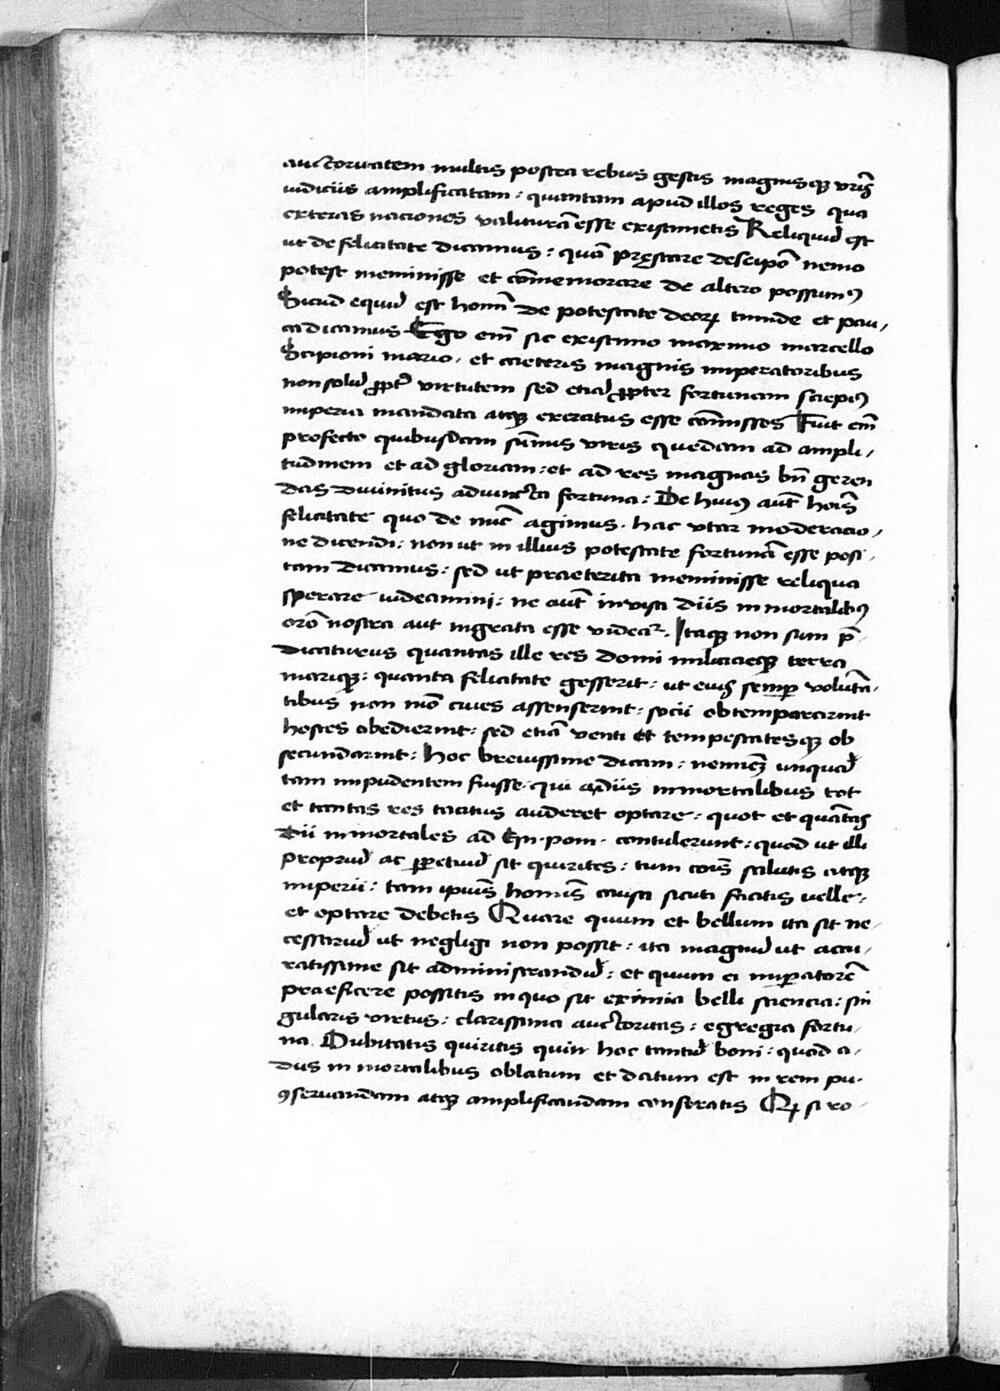 auctoritatem multis postea rebus gestis magnisqꝫ vr̄is
iudiciis amplificatam : quantam apud illos reges qua
exteras naciones valiturā esse existimetis Reliquū est
ut de felicitate dicamus : quā pręstare de seip̄o nemo
potest meminisse et cōmemorare de altero possumꝰ
Sicud equū est homī de potestate deoꝝ timide et pau /
ca dicamus Ego em̄ sic existimo maximo marcello
Scipioni mario . et caeteris magnis imperatoribus
non solū ꝓpt̄ virtutem sed etiā ꝓpter fortunam saepiꝰ
imperia mandata atqꝫ exercitus esse cōmissos Fuit em̄
profecto quibusdam sūmis viris quedam ad ampli /
tudinem et ad gloriam : et ad res magnas bn̄ geren
das diuinitus adiuncta fortuna : De huiꝰ aut̄ hoīs
felicitate quo de nūc agimus . hac vtar moderacio /
ne dicendi : non ut in illius potestate fortunā esse posi /
tam dicamus : sed ut praeterita meminisse reliqua
sperare uideamini : ne aut̄ inuisa diis inmortalibꝰ
orō nostra aut ingrata esse videat̄ . Itaqꝫ non sum p̄ -
dicaturus quantas ille res domi miliciaeqꝫ terra
mariqꝫ : quanta felicitate gesserit : ut eiꝰ semꝑ volūta -
tibus non mō ciues assenserint : socii obtemperarint
hostes obedierint : sed etiā venti et tempestatesqꝫ ob
secundarint : hoc breuissime dicam : neminē unquā
tam impudentem fuisse . qui a diis inmortalibus tot
et tantas res tacitus auderet optare : quot et quātas
dii inmortales ad Gn . pom . contulerunt : quod ut illi
propriū ac ꝑpetuū sit quirites : tum cōis salutis atqꝫ
imperii : tam ipius hominis causa sicuti facitis uelle :
et optare debetis Quare quum et bellum ita sit ne -
cessariū ut negligi non possit : ita magnū ut accu /
ratissime sit administrandū : et quum ei impatorē
praeficere possitis in quo sit eximia belli sciencia : sin
gularis virtus : clarissima auctoritas : egregia fortu -
na Dubitatis quiritis quin hoc tantū boni : quod a /
diis inmortalibus oblatum et datum est in rem pu .
ꝯseruandam atqꝫ amplificandam conferatis Qꝫ si ro -